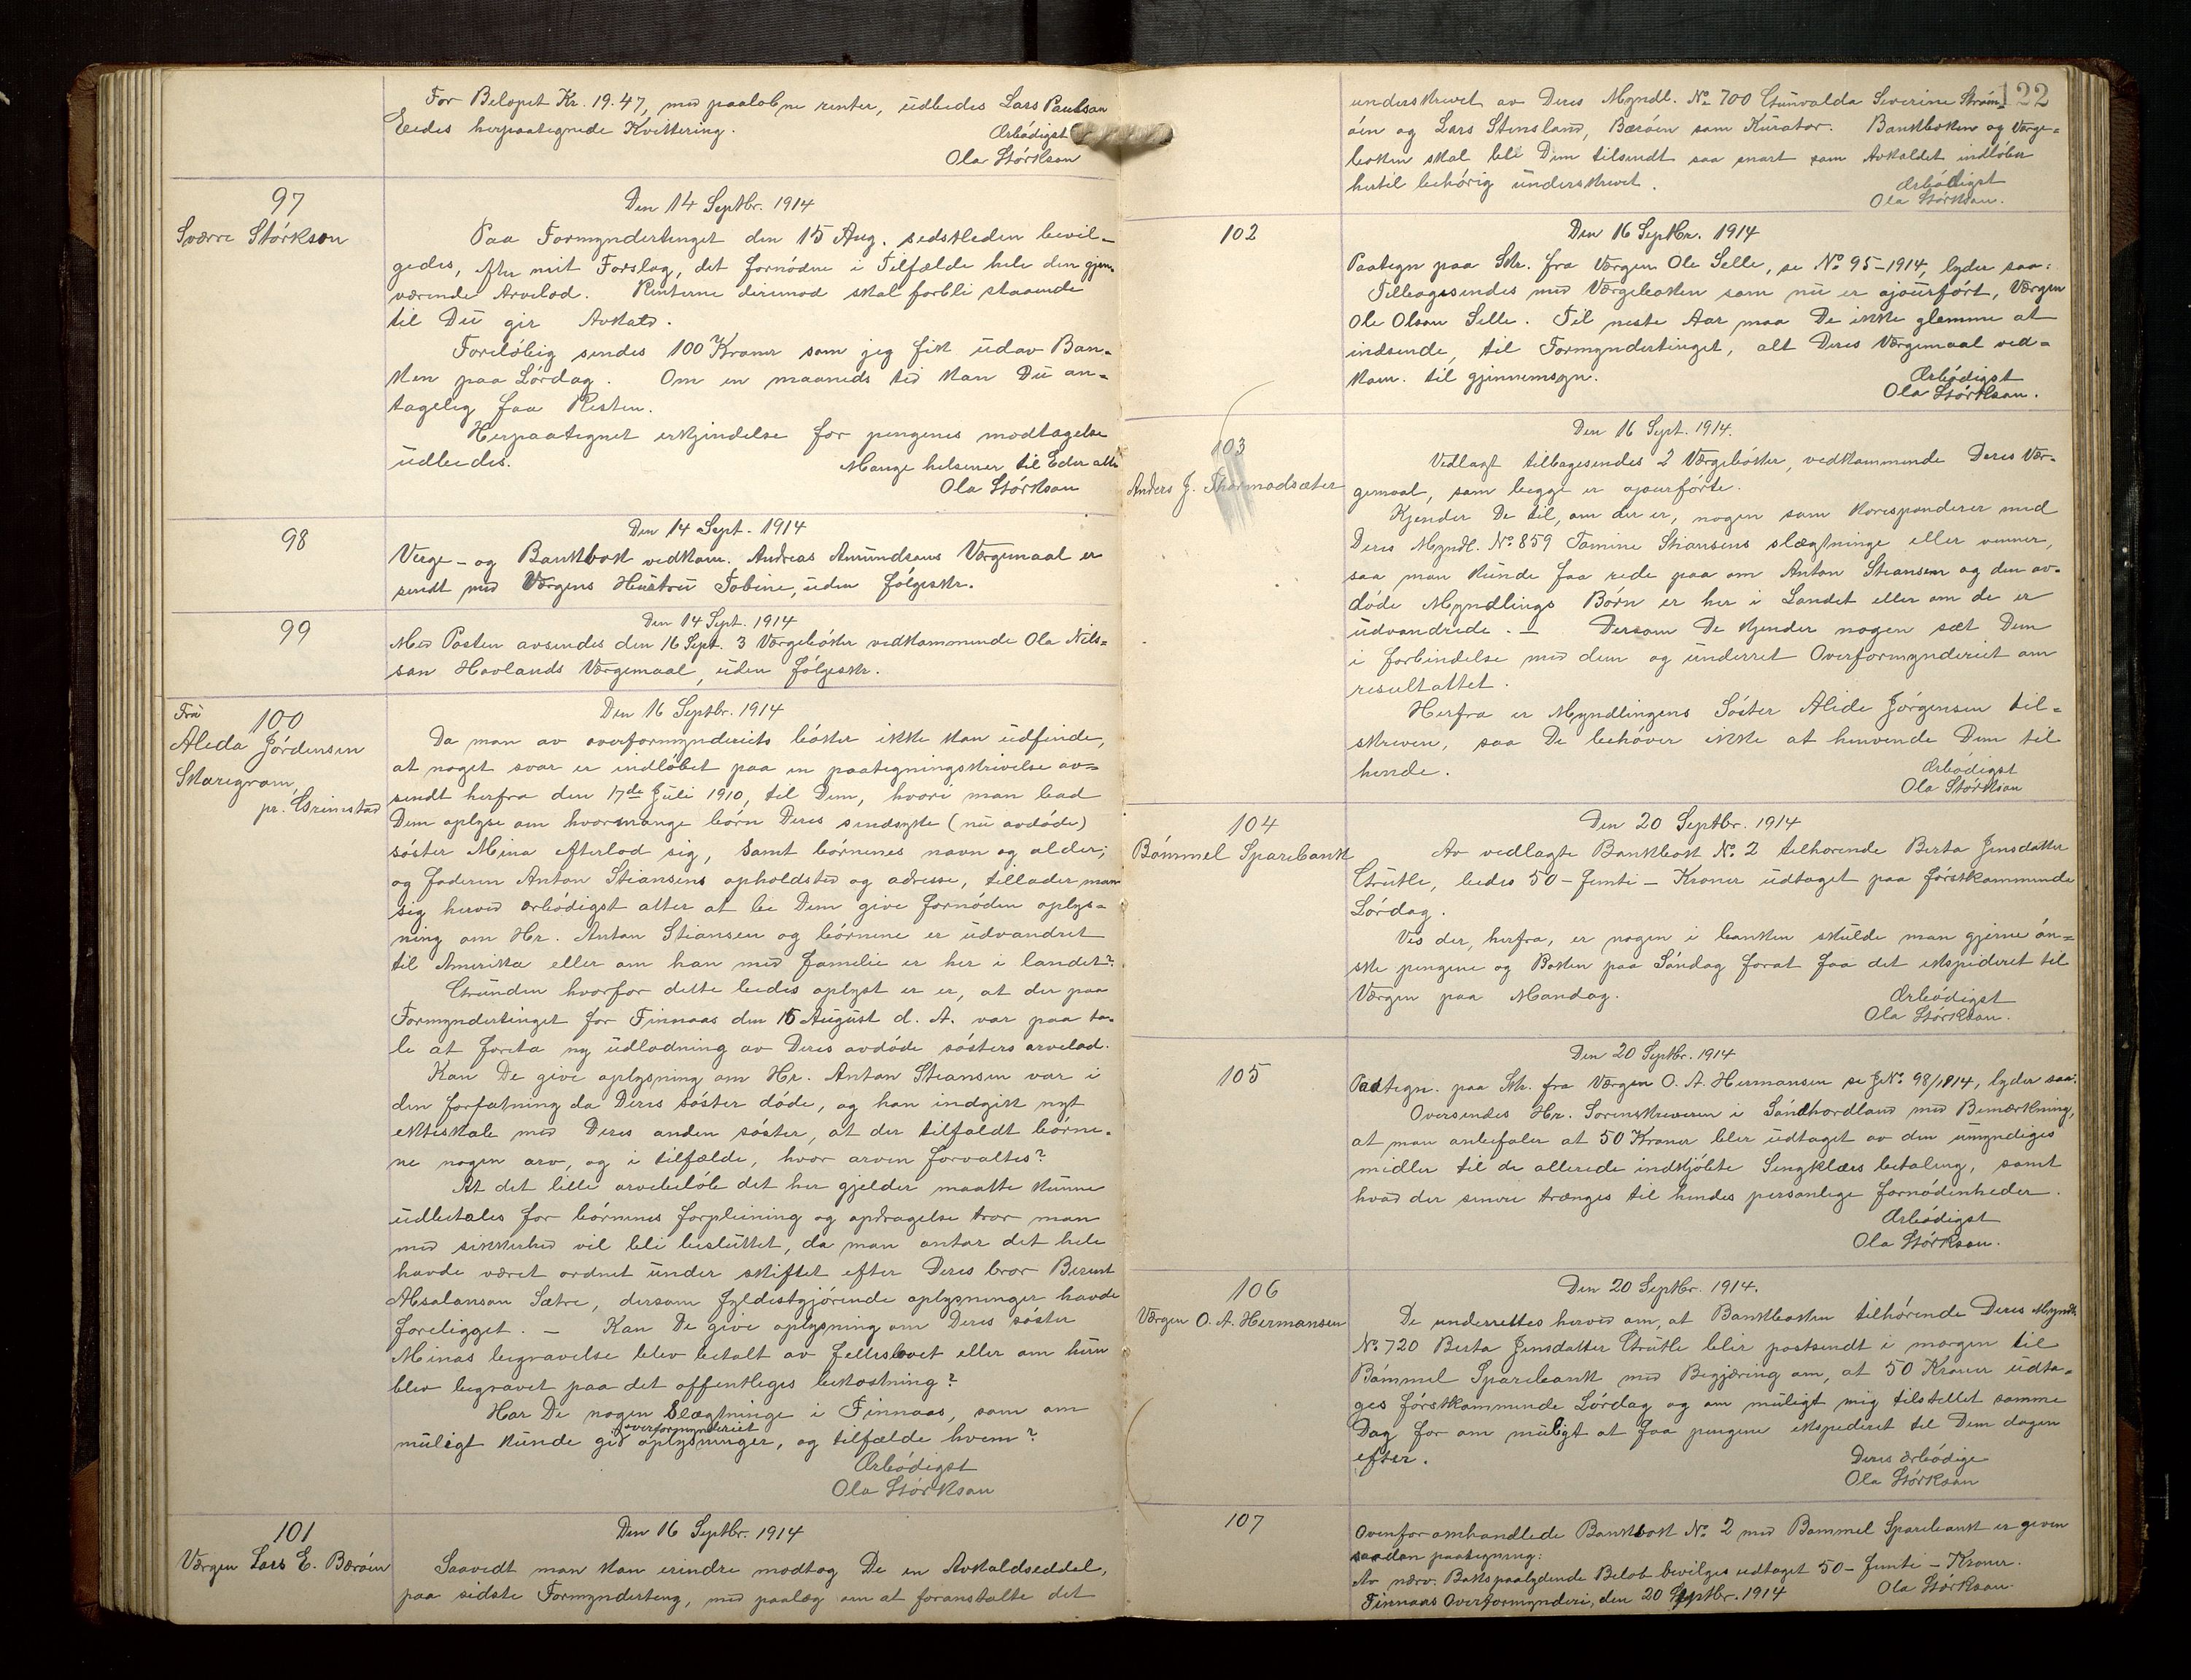 For Beløpet Kr. 19.47, med paaløbne renter, udbedes Lars Paulsan
Eiedes herpaategnede Kvittering.
Ærbødigst
Ola Størksan
97
Sværre Størkson
Den 14 Septbr. 1914
Paa Formyndertinget den 15 Aug. sidstleden bevil-
gedes, efter mit Forslag, det fornødne i Tilfælde hele den gjen-
værende Arvelod. Renterne derimod skal forbli staaende
til Du gir Avkald.
Foreløbig sendes 100 Kroner som jeg fik udav Ban-
ken paa Lørdag. Om en maaneds tid kan Du an-
tagelig faa Resten.
Herpaategnet erkjendelse for pengenes modtagelse
udbedes.
Mange helsener til Eder alle
Ola Størksan
98
Den 14 Sept. 1914
Verge- og Bankbok vedkom. Andreas Amundsens Værgemaal er
sendt med Værgens Hustru Tobine, uden følgeskr.
99
Den 14 Sept. 1914
Med Posten avsendes den 16 Sept. 3 Værgebøker vedkommende Ola Nils-
san Havlands Værgemaal, uden følgeskr.
Fra
100
Aleda Jørdensen
Skaregrom,
pr. Grimstad
Den 16 Septbr. 1914
Da man av overformynderiets bøker ikke kan udfinde,
at noget svar er indløbet paa en paategningskrivelse av-
sendt herfra den 17de Juli 1910, til Dem, hvori man bad
Dem oplyse om hvormange børn Deres sindsyke (nu avdøde)
søster Mina efterlod sig, samt børnenes navn og alder;
og faderen Anton Stiansens opholdsted og adresse, tillader man
sig herved ærbødigst atter at be Dem give fornøden oplys-
ning om Hr. Anton Stiansen og børnene er udvandret
til Amerika eller om han med familie er her i landet?
Grunden hvorfor dette bedes oplyst er er, at der paa
Formyndertinget for Finnaas den 15 August d. A. var paa ta-
le at foreta ny udlodning av Deres avdøde søsters arvelod.
Kan De give oplysning om Hr. Anton Stiansen var i
den forfatning da Deres søster døde, og han indgik nyt
ekteskab med Deres anden søster, at der tilfaldt børne-
ne nogen arv, og i tilfælde, hvor arven forvaltes?
At det lille arvebeløb det her gjelder maatte kunne
udbetales for børnenes forpleining og opdragelse tror man
med sikkerhed vil bli besluttet, da man antar det hele
havde været ordnet under skiftet efter Deres bror Berent
Absalonson Sætre, dersom fyldestgjørende oplysninger havde
foreligget. — Kan De give oplysning om Deres søster
Minas begravelse blev betalt av fellesboet eller om hun
blev begravet paa det offentleges bekostning?
Har De nogen slægtninge i Finnaas, som om
muligt kunde gi overformynderiet oplysninger, og tilfælde hvem?
Ærbødigst
Ola Størksan
101
Værgen Lars E. Bærøen
Den 16 Septbr. 1914
Saavedt man kan erindre modtog De en Avkaldseddel,
paa sidste Formynderteng, med paalæg om at foranstalte det
122
underskrevet av Deres Myndl. No 700 Gunvalda Severine Strøm-
øen og Lars Stensland, Bærøen som Kurator. Bankboken og Værge-
boken skal bli Dem tilsendt saa snart som Avkaldet indløber
hertil behørig underskrevet.
Ærbødigst
Ola Størksan.
102
Den 16 Septbr. 1914
Paategn paa Skr. fra Værgen Ole Selle, se No 95-1914, lyder saa:
Tilbagesendes med Værgeboken som nu er ajourført, Værgen
Ole Olson Selle. Til neste Aar maa De ikke glemme at
indsende, til Formyndertinget, alt Deres Værgemaal ved-
kom. til gjennemsyn.
Ærbødigst
Ola Størksan.
103
Anders J. Thormodsæter
Den 16 Sept. 1914.
Vedlagt tilbagesendes 2 Værgebøker, vedkommende Deres Vær-
gemaal, som begge er ajourførte.
Kjender De til, om der er, nogen som koresponderer med
Deres Myndl. No 859 Tomine Stiansens slægtninge eller venner,
saa man kunde faa rede paa om Anton Stiansen og den av-
døde Myndlings Børn er her i Landet eller om de er
udvandrede. — Dersom De kjender nogen sæt Dem
i forbindelse med dem og underret Overformynderiet om
resultattet.
Herfra er Myndlingens Søster Alide Jørgensen til-
skreven, saa De behøver ikke at henvende Dem til
hende.
Ærbødigst
Ola Størksan
104
Bømmel Sparebank
Den 20 Septbr. 1914
Av vedlagte Bankbok No 2 tilhørende Berta Jensdatter
Grutle, bedes 50 - femti - Kroner udtaget paa førstkommende
Lørdag.
Vis der, herfra, er nogen i banken skulde man gjerne øn-
ske pengene og Boken paa Søndag forat faa det ekspideret til
Værgen paa Mandag.
Ærbødigst
Ola Størksan.
105
Den 20 Septbr. 1914
Paategn. paa Skr. fra Værgen O. A. Hermansen se J No. 98/1914, lyder saa:
Oversendes Hr. Sorenskriveren i Søndhordland med Bemærkning,
at man anbefaler at 50 Kroner blir udtaget av den umyndiges
midler til de allerede indkjøbte Sengklærs betaling, samt
hvad der senere trænges til hendes personlige fornødenheder.
Ærbødigst
Ola Størksan.
106
Værgen O. A. Hermansen
Den 20 Septbr. 1914.
De underrettes herved om, at Bankboken tilhørende Deres Myndl.
No 720 Berta Jensdatter Grutle blir postsendt i morgen til
Bømmel Sparebank med Begjæring om, at 50 Kroner udta-
ges førstkommende Lørdag og om muligt mig tilstellet samme
Dag for om muligt at faa pengene ekspederet til Dem dagen
efter.
Deres ærbødige
Ola Størksan
107
Ovenfor omhandlede Bankbok No 2 med Bømmel Sparebank er given
saadan paategning:
Av nærv. Boks paalydende Beløb bevilges udtaget 50 - femti - Kroner.
Finnaas Overformynderi, den 20 Septbr. 1914
Ola Størksan.